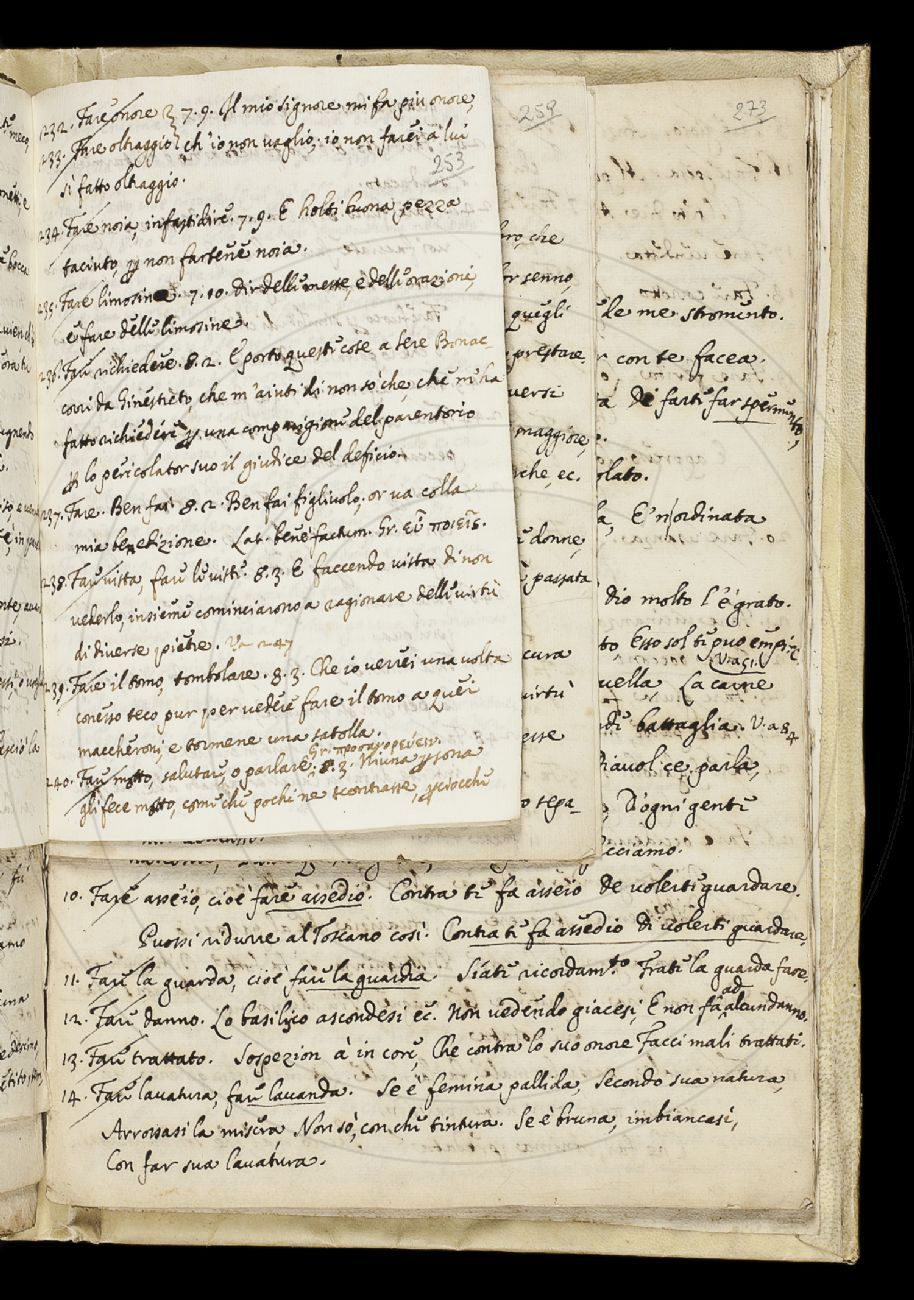 232. Fare onore } 7. 9. Il mio signore mi fa più onore,
233. Fare oltraggio } ch'io non vaglio; io non farei a lui
253
sì fatto oltraggio.
234. Fare noia, infastidire. 7. 9. E holti buona pezza
taciuto, p non fartene noia.
235. Fare limosine. 7. 10. Dir delle messe, e delle orazioni,
e fare delle limosine.
236. Far richiedere. 8. 2. E porto queste cose a Sere Bonac-
corri da Ginestreto, che m'aiuti di non so che, che m'ha
fatto richiedere p una comparigione del parentorio
p lo pericolator suo il giudice del deficio.
237. Fare. Ben fai 8. 2. Ben fai figliuolo, or va colla
mia benedizione. Lat. benefactum. Gr. εὖ ποιεῖς.
238. Far vista, fare le viste. 8. 3. E faccendo vista di non
vederlo, insieme cominciarono a ragionare delle virtù
di diverse pietre. Va 247
239. Fare il tomo, tombolare. 8. 3. Che io verrei una volta
conesso teco pur per vedere fare il tomo a quei
maccheroni, e tormene una satolla.
240. Far motto, salutare, o parlare. 8. 3. Niuna psona
gli fece motto, come che pochi ne scontrasse
259
che
senno,
quegli
prestare
versi
maggiore
che, ec.
donne,
passata
cura
virtù
esse
sepa-
273
de me stromento.
con te facea.
de farti far sperim
olato.
E n'ordinata
dio molto l'è grato.
to, Esso sol ti può empire
V.a 51.
uella, La carne
battaglia. V. a 84
Diavol ce parla,
D'ogni gente
cciamo.
10. Fare asseio, cioè fare assedio. Contra te fa asseio De volerti guardare.
Puossi ridurre al Toscano così. Contra te fa assedio di volerti guardare.
11. Fare la guarda, cioè fare la guardia. Siate ricordam.to Frate la guarda fare
12. Fare danno. Lo basilico ascondesi ec. Non vedendo giacesi, E non fa ad alcun danno.
13. Fare trattato. Sospezion à in core, Che contra lo suo onore Facci mali trattati.
14. Fare lavatura, fare lavanda. Se è femina pallida, Secondo sua natura,
Arrossasi la misera, Non sò, con che tintura. Se è bruna, imbiancasi,
Con far sua lavatura.